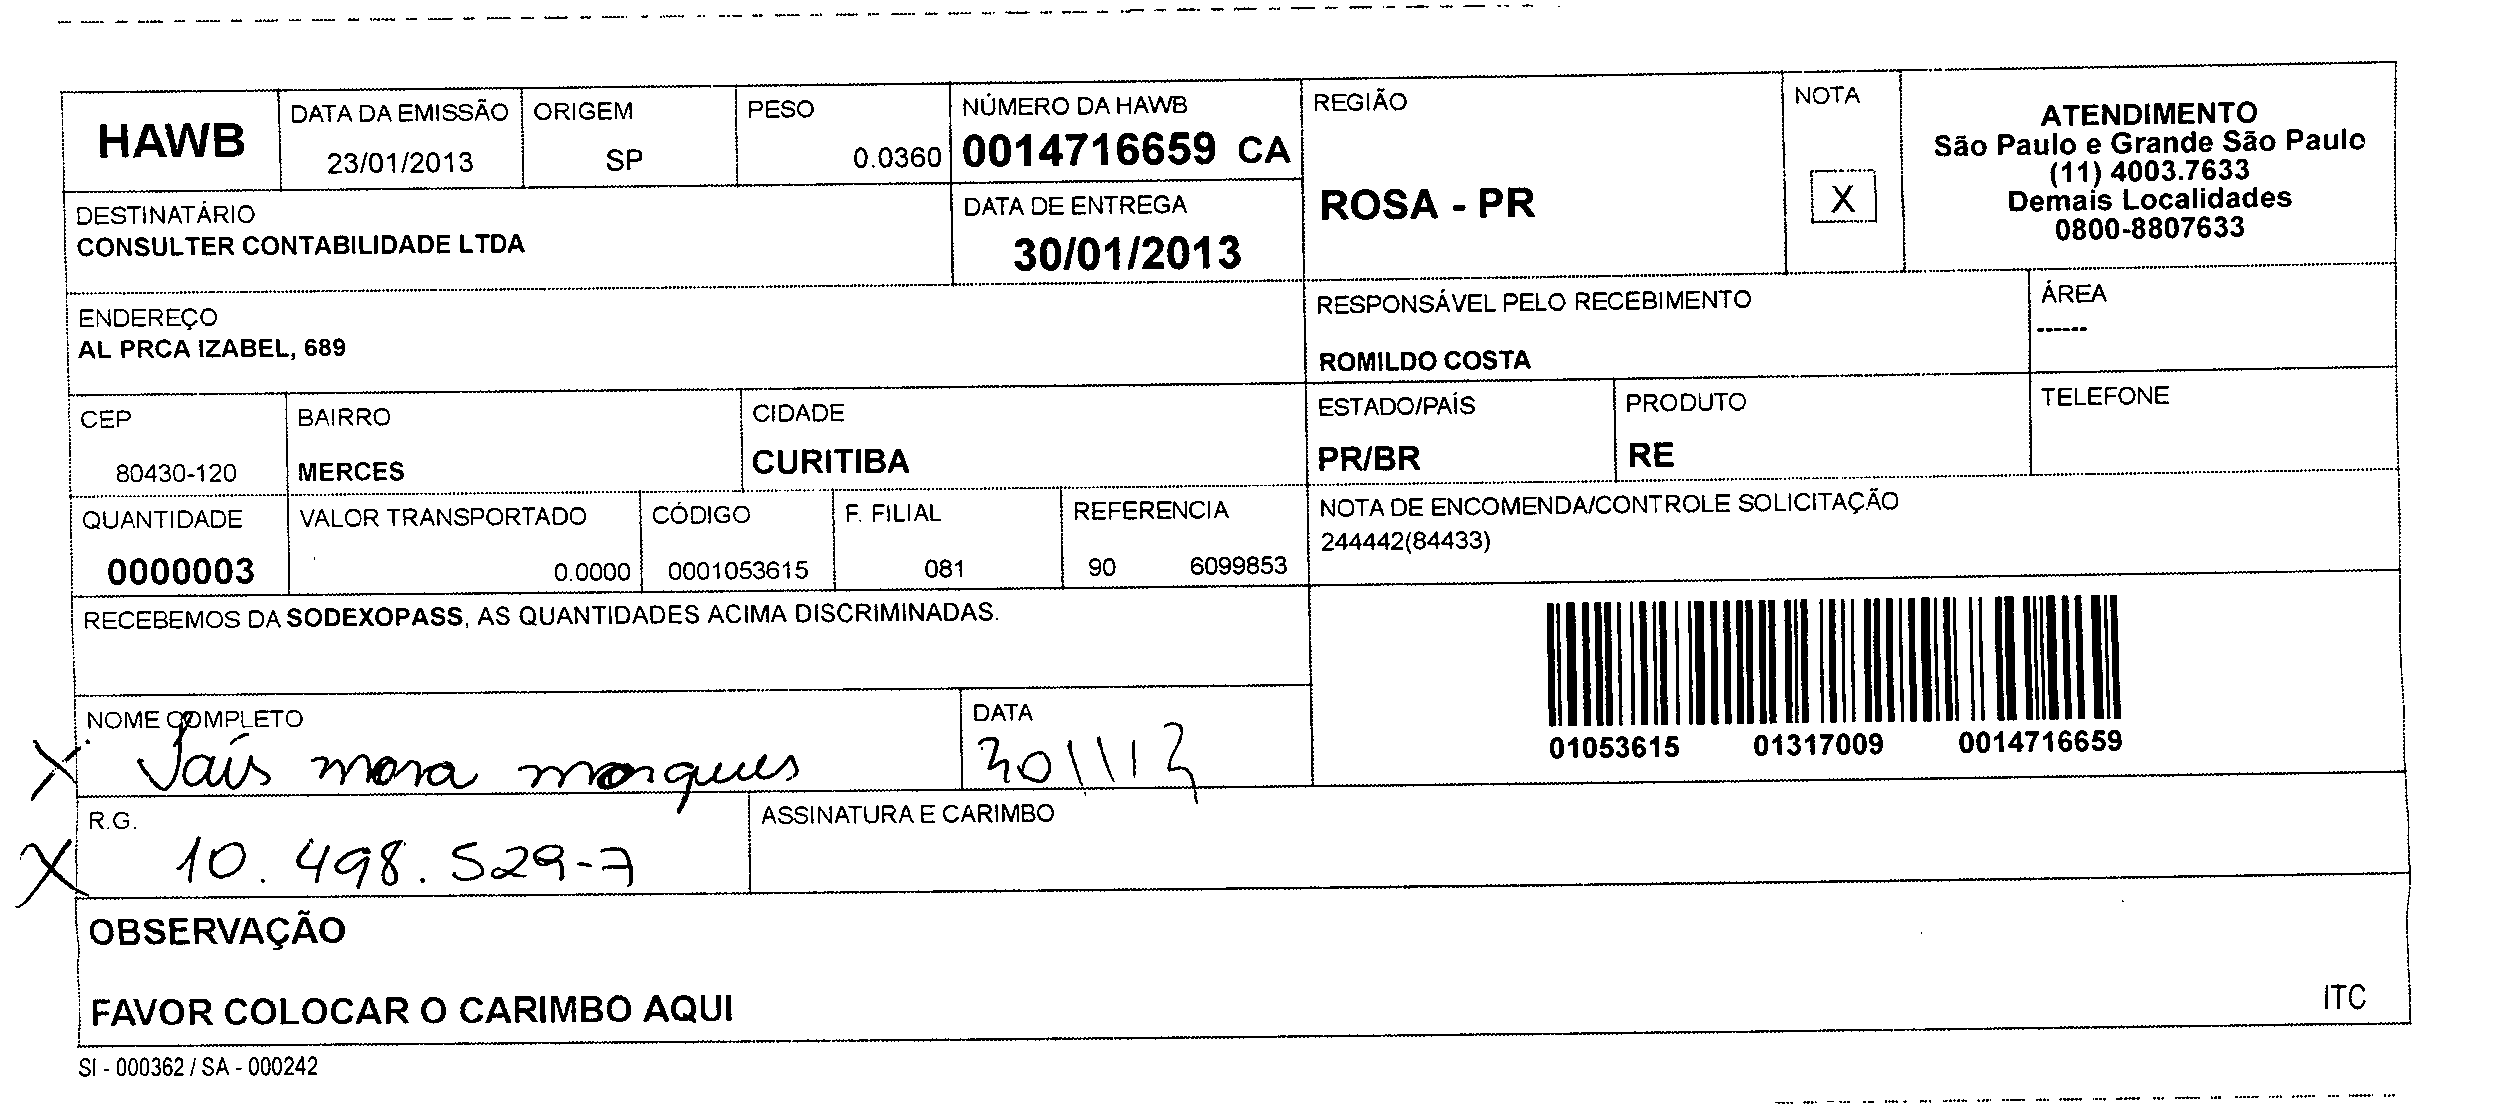 HAWB
DATA DA EMISSÃO
23/01/2013
ORIGEM
SP
PESO
0.0360
NÚMERO DA HAWB
0014716659 CA
REGIÃO
ROSA - PR
NOTA
X
ATENDIMENTO
São Paulo e Grande São Paulo
(11) 4003.7633
Demais Localidades
0800-8807633
DESTINATÁRIO
CONSULTER CONTABILIDADE LTDA
DATA DE ENTREGA
30/01/2013
ENDEREÇO
AL PRCA IZABEL, 689
RESPONSÁVEL PELO RECEBIMENTO
ROMILDO COSTA
ÁREA
------
CEP
80430-120
BAIRRO
MERCES
CIDADE
CURITIBA
ESTADO/PAÍS
PR/BR
PRODUTO
RE
TELEFONE
QUANTIDADE
0000003
VALOR TRANSPORTADO
0.0000
CÓDIGO
0001053615
F. FILIAL
081
REFERENCIA
90 6099853
NOTA DE ENCOMENDA/CONTROLE SOLICITAÇÃO
244442(84433)
RECEBEMOS DA SODEXOPASS, AS QUANTIDADES ACIMA DISCRIMINADAS.
01053615 01317009 0014716659
NOME COMPLETO
X mora marques
DATA
30/1/13
R.G.
X 10.498.529-7
ASSINATURA E CARIMBO
OBSERVAÇÃO
FAVOR COLOCAR O CARIMBO AQUI
ITC
SI - 000362 / SA - 000242